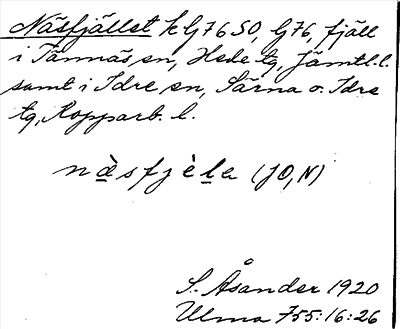 Näsfjället k G76 SO, G76, fjäll
i Tännäs sn, Hede tg, Jämtl. l.
samt i Idre sn, Särna o. Idre
tg, Kopparb. l.
nä̀sfjèla (JO, N)
S. Åsander 1920
Ulma 755:16:26